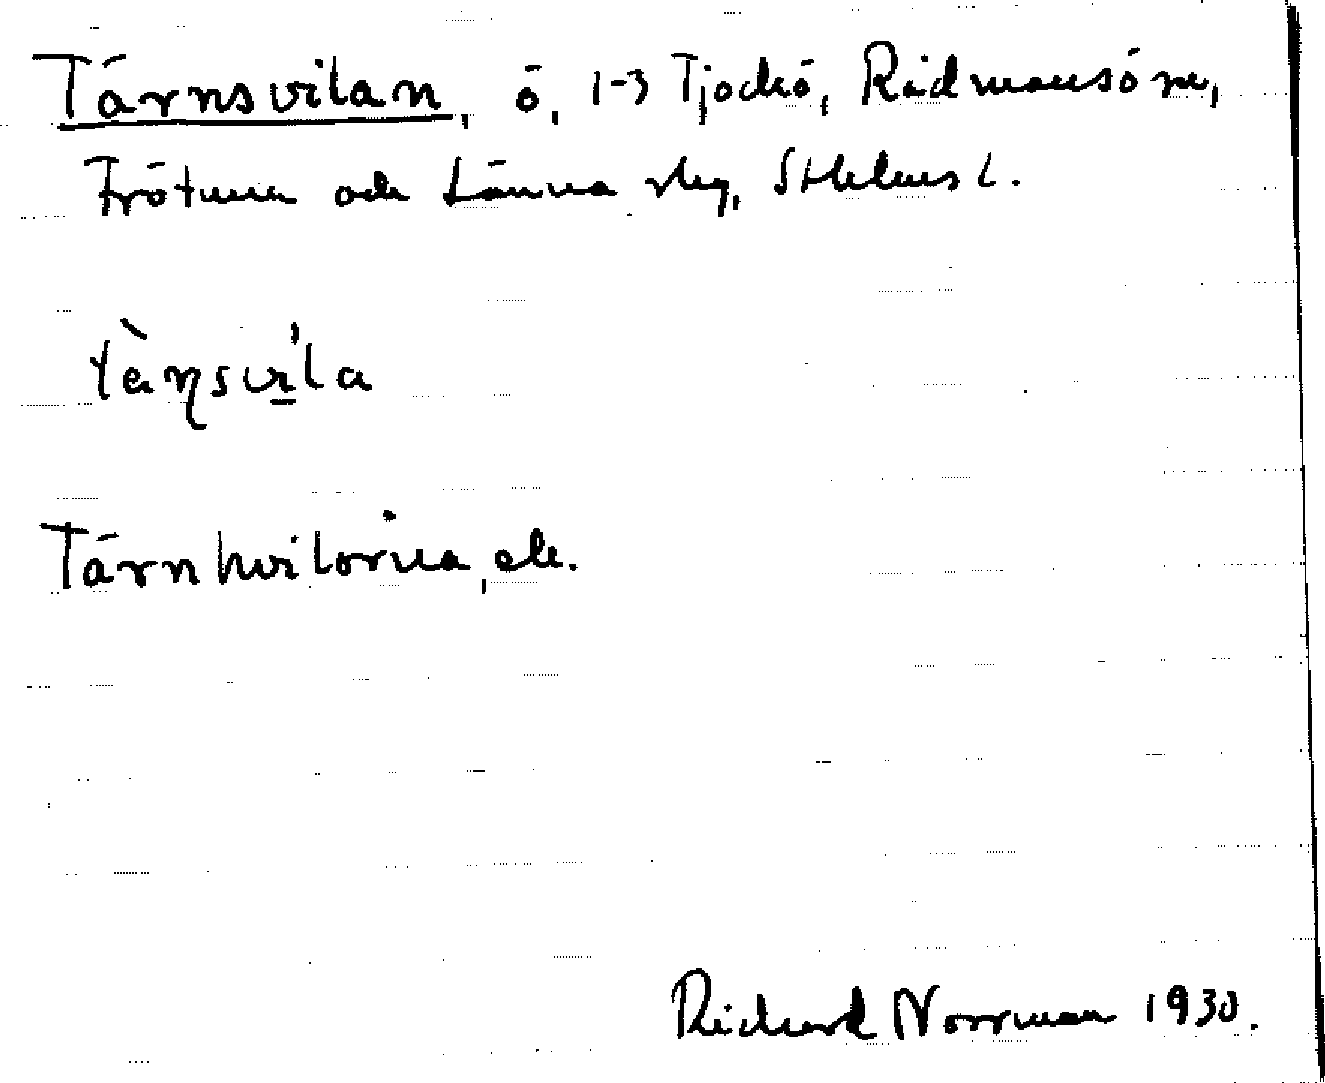 Tärnsvilan, ö, 1-3 Tjockö, Rådmansö sn,
Frötuna och Länna slg, Sthlms l.
tä̀ṇsvi̱la
Tärnhvilorna, ek.
Richard Norrman 1930.